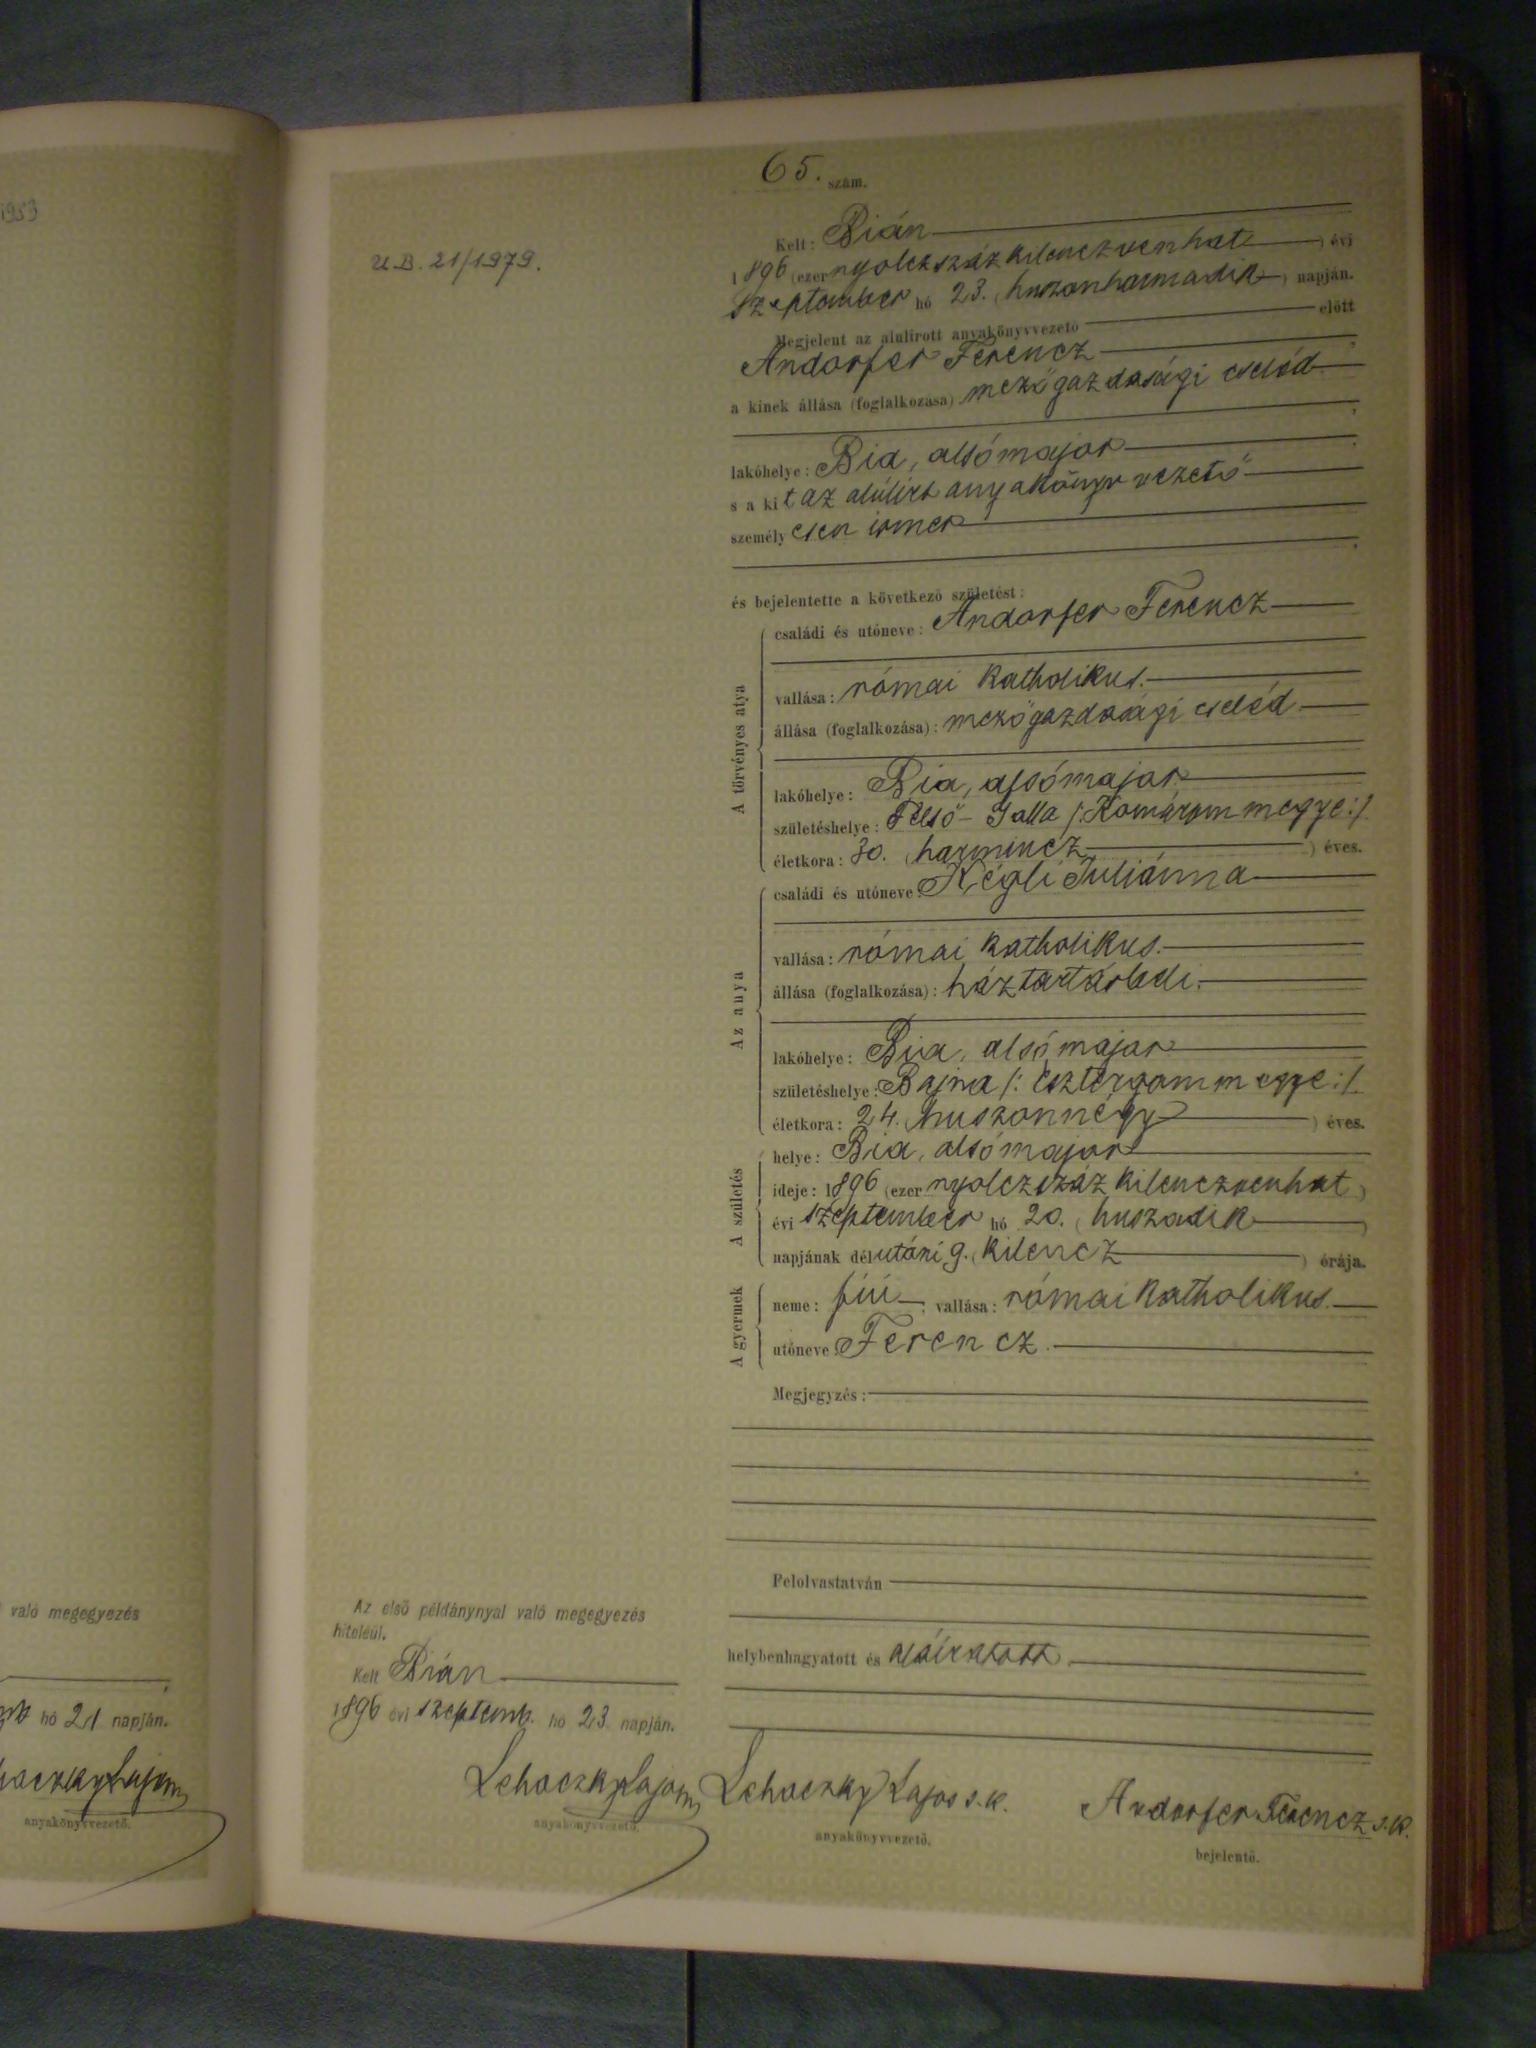 1953
U.B. 21/1979.
65. szám.
Kelt: Bián
1896 (ezer nyolczszáz kilenczvenhat) évi
szeptember hó 23. (huszonharmadik) napján.
Megjelent az alulirott anyakönyvvezető előtt
Andorfer Ferencz,
a kinek állása (foglalkozása) mezőgazdasági cseléd
lakóhelye: Bia, alsómajor
s a kit az alúlirt anyakönyvvezető
személyesen ismer
és bejelentette a következő születést:
A törvényes atya
családi és utóneve: Andorfer Ferencz
vallása: római katholikus.
állása (foglalkozása): mezőgazdasági cseléd
lakóhelye: Bia, alsómajor
születéshelye: Felső-Galla /: Komárom megye :/
életkora: 30. (harmincz) éves.
Az anya
családi és utóneve: Kégli Juliánna
vallása: római katholikus.
állása (foglalkozása): háztartásbeli.
lakóhelye: Bia, alsómajor
születéshelye: Bajna /: Esztergom megye :/
életkora: 24. (huszonnégy) éves.
A születés
helye: Bia, alsómajor
ideje: 1896 (ezer nyolczszáz kilenczvenhat)
évi szeptember hó 20. (huszadik)
napjának délutáni 9. (kilencz) órája.
A gyermek
neme: fiú; vallása: római katholikus.
utóneve: Ferencz.
Megjegyzés:
Felolvastatván
helybenhagyatott és aláiratott.
Az első példánynyal való megegyezés
hiteléül.
Kelt Bián
1896 évi szeptemb. hó 23 napján.
Lehoczky Lajos
anyakönyvvezető.
Lehoczky Lajos s.k.
anyakönyvvezető.
Andorfer Ferencz s.k.
bejelentő.
való megegyezés
hó 21 napján.
Lajos
anyakönyvvezető.